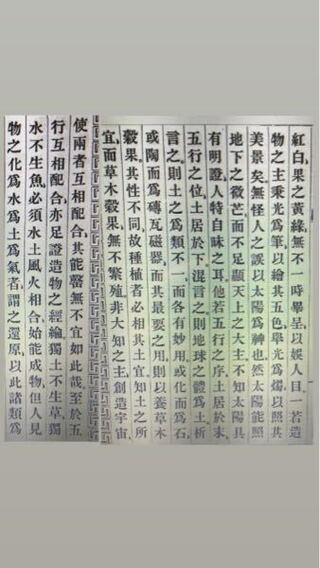 紅白、果之黃綠、無不一時畢呈、以娛人目、一若造
物之主秉光爲筆、以繪其五色、舉光爲燭、以照其
美景矣、無怪人之誤以太陽爲神也、然太陽能照
地下之微芒、而不足顯天上之大主、不知太陽具
有明證、人特自昧之耳、他若五行之序、土居於末、
五行之位、土居於下、混言之、則地球之體爲土、析
言之、則土之爲類不一、而各有妙用、或化而爲石、
或陶而爲磚瓦磁器、而其最要之用、則以養草木
穀果、其性不同、故種植者必相其土宜、知土之所
宜、而草木穀果、無不繁殖、非大知之主、創造宇宙、
使兩者互相配合、其能罄無不宜如此哉、至於五
行互相配合、亦足證造物之經綸、獨土不生草、獨
水不生魚、必須水土風火相合、始能成物、但人見
物之化爲水爲土爲氣者、謂之還原、以此諸類爲